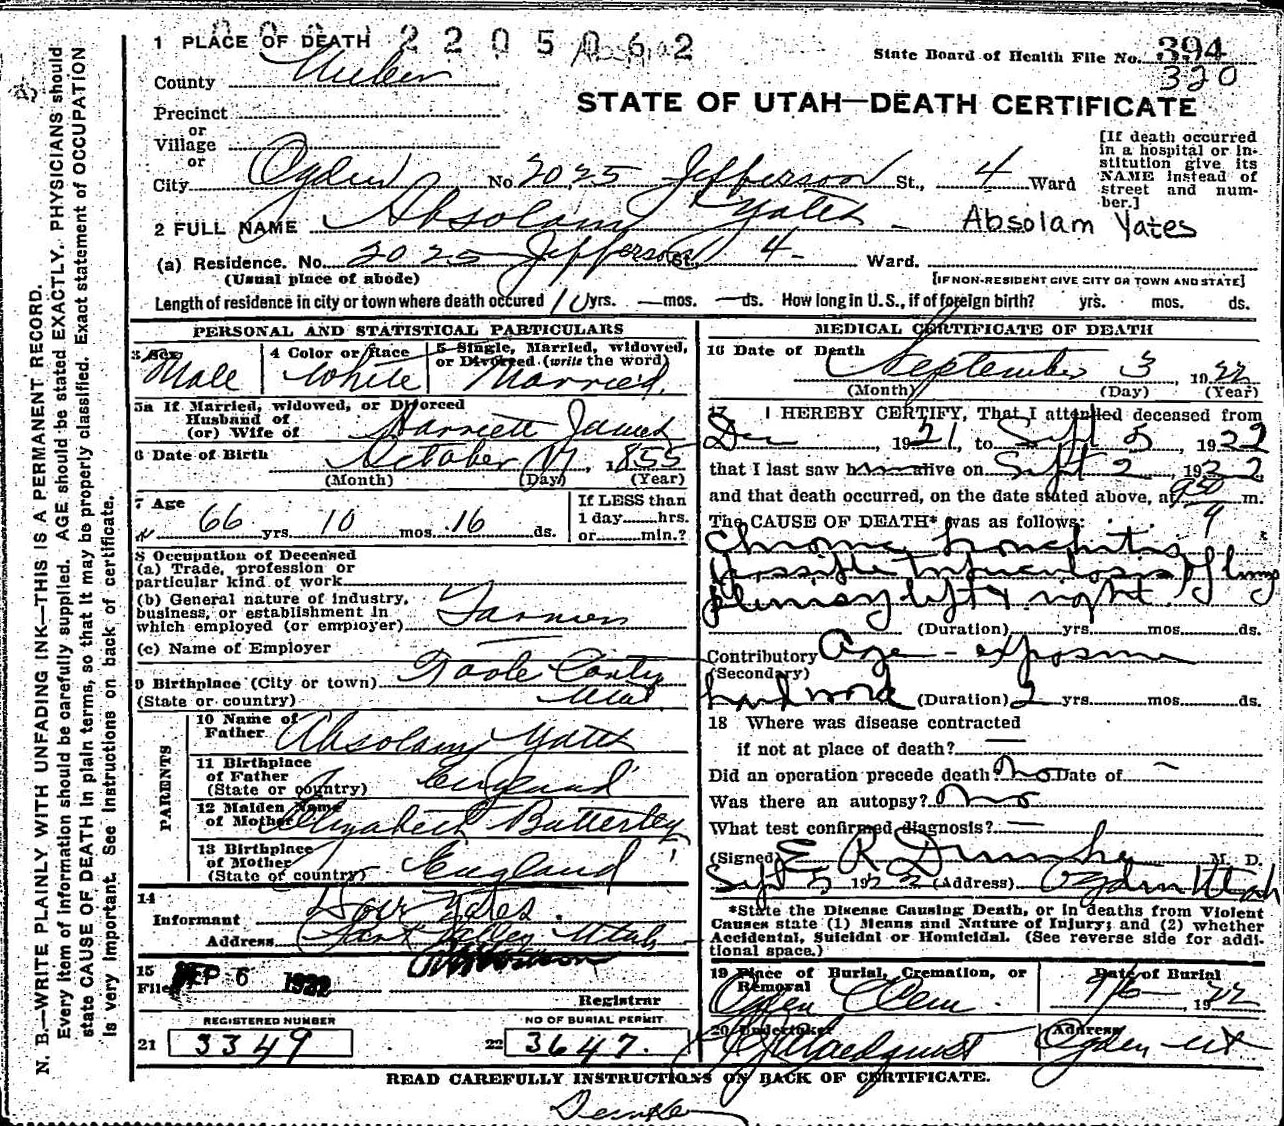 1 PLACE OF DEATH 2205062
State Board of Health File No. 394
320
County Weber
STATE OF UTAH—DEATH CERTIFICATE
Precinct
or
Village
or
City Ogden No. 2025 Jefferson St., 4 Ward
[If death occurred in a hospital or institution give its NAME instead of street and number.]
2 FULL NAME Absolam Yates
Absolam Yates
(a) Residence. No. 2025 Jefferson St., 4 Ward.
(Usual place of abode)
[IF NON-RESIDENT GIVE CITY OR TOWN AND STATE]
Length of residence in city or town where death occured 10 yrs. — mos. — ds. How long in U.S., if of foreign birth? yrs. mos. ds.
PERSONAL AND STATISTICAL PARTICULARS
3 Sex Male
4 Color or Race White
5 Single, Married, widowed, or Divorced (write the word) Married
5a If Married, widowed, or Divorced
Husband of
(or) Wife of Harriett James
6 Date of Birth October 17, 1855
(Month) (Day) (Year)
7 Age 66 yrs. 10 mos. 16 ds.
If LESS than
1 day......hrs.
or......min.?
8 Occupation of Deceased
(a) Trade, profession or
particular kind of work
(b) General nature of industry,
business, or establishment in
which employed (or employer) Farmer
(c) Name of Employer
9 Birthplace (City or town) Tooele County
(State or country) Utah
PARENTS
10 Name of Father Absolam Yates
11 Birthplace of Father
(State or country) England
12 Maiden Name of Mother Elizabeth Butterley
13 Birthplace of Mother
(State or country) England
14
Informant Yates
Address Utah
15
Filed SEP 6 1922
Registrar
REGISTERED NUMBER
21 3349
NO OF BURIAL PERMIT
22 3647.
MEDICAL CERTIFICATE OF DEATH
16 Date of Death September 3 1922
(Month) (Day) (Year)
17 I HEREBY CERTIFY, That I attended deceased from
Dec, 1921, to Sept 5, 1922
that I last saw him alive on Sept 2, 1922
and that death occurred, on the date stated above, at 9 50 m.
The CAUSE OF DEATH* was as follows:
Chronic bronchitis
possible tuberculosis of lung
pleurisy left & right.
(Duration) yrs. mos. ds.
Contributory Age - exposure
(Secondary)
hard work (Duration) 2 yrs. mos. ds.
18 Where was disease contracted
if not at place of death? —
Did an operation precede death? no Date of —
Was there an autopsy? no
What test confirmed diagnosis? —
(Signed) E R Dumke M. D.
Sept 5 1922 (Address) Ogden Utah
*State the Disease Causing Death, or in deaths from Violent
Causes state (1) Means and Nature of Injury; and (2) whether
Accidental, Suicidal or Homicidal. (See reverse side for additional space.)
19 Place of Burial, Cremation, or Removal Ogden Cem.
Date of Burial 9/6 1922
20 Undertaker
Address Ogden Ut
READ CAREFULLY INSTRUCTIONS ON BACK OF CERTIFICATE.
Dumke
N. B.—WRITE PLAINLY WITH UNFADING INK—THIS IS A PERMANENT RECORD.
Every item of information should be carefully supplied. AGE should be stated EXACTLY. PHYSICIANS should
state CAUSE OF DEATH in plain terms, so that it may be properly classified. Exact statement of OCCUPATION
is very important. See instructions on back of certificate.